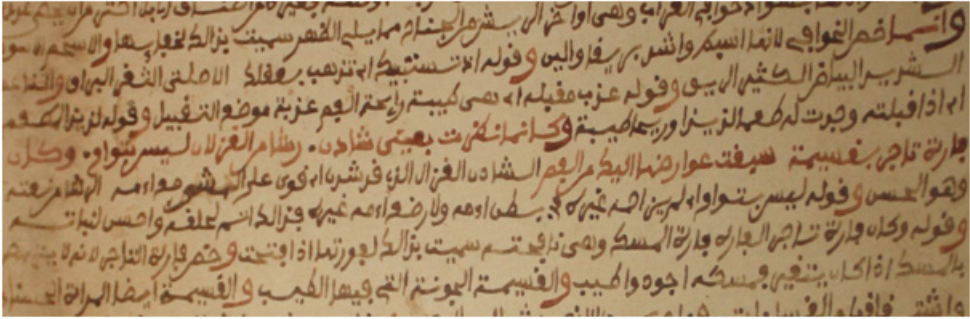 خوافي الغراب وهي اواخر الريش من الجناح مما يلي الظهر سميت بذلك لخفايها والاسحم الاسود
وانما خص الخوافي لانها ابسط واشد بريقا والين وقوله اذ تستبيك اي تذهب بعقلك الاصلتي الثغر البراق
الشديد البياض الكثير الريق وقوله عذب مقبله اي هي طيبة رايحة الفم عذبة موضع التقبيل وقوله لذيذ المطعم
اي اذا قبلته وجدت له طعما لذيذا وريحا طيبة وكانما نظرت بعيني شادن رشا من الغزلان ليس بتوام وكان
فارة تاجر بقسيمة سبقت عوارضها اليك من الفم الشادن الغزال الذي قد شدن اي قوي على المشي مع امه الرشا من نعته
وهو الحسن وقوله ليس بتوام اي لم يزاحمه غيره في بطن امه ولا رضع امه غيره فذلك اتم لخلقه واحسن لنباته
وقوله وكان فارة تاجر الفارة فارة المسك وهي نافجته سميت بذلك لفورتها اذا فتحت وخص فارة التاجر لانه لا
بالمسك اذا كان يتغير فمسكه اجود واطيب والقسيمة الجونة التي فيها الطيب والقسيمة ايضا المراة الحسناء